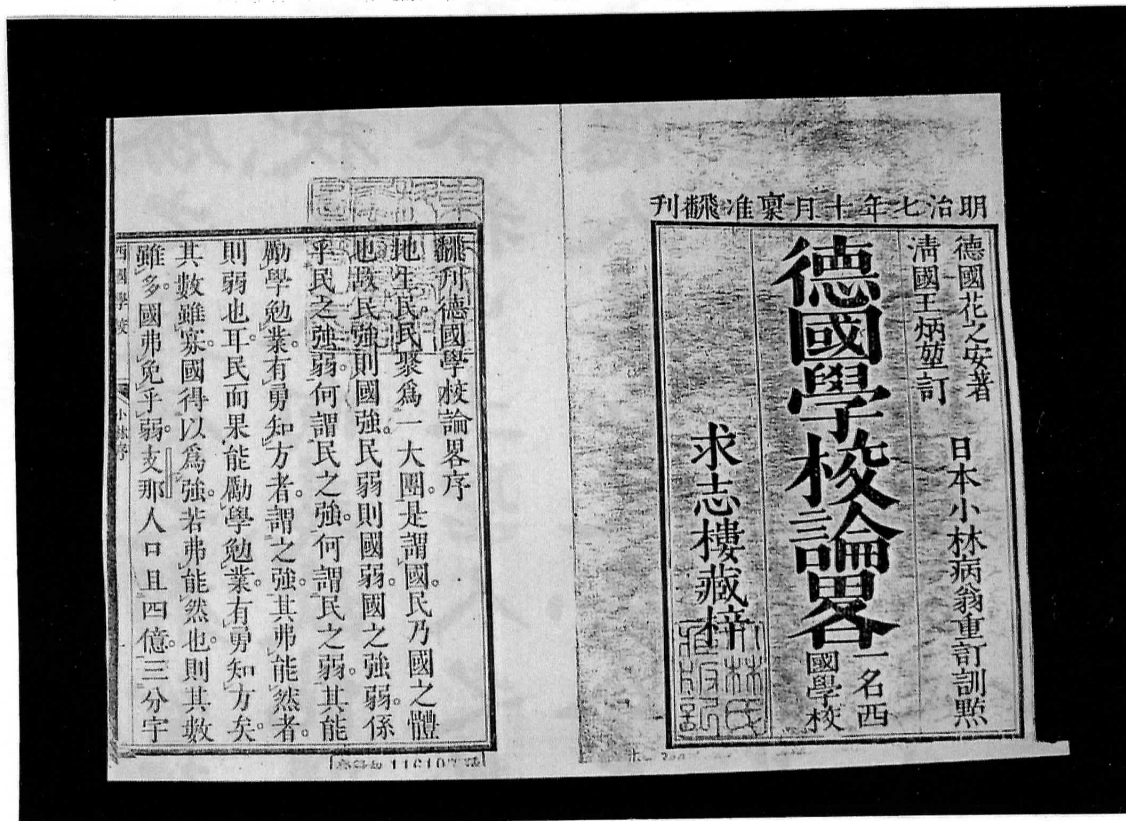 明治七年十月稟准飜刻
德國花之安著
淸國王炳堃訂
日本小林病翁重訂訓㸃
德國學校論畧
一名西
國學校
求志樓藏梓
飜刋德國學校論畧序
地生民民聚爲一大團是謂國民乃國之體
也故民強則國強民弱則國弱國之強弱係
乎民之強弱何謂民之強何謂民之弱其能
勵學勉業有勇知方者謂之強其弗能然者
則弱也耳民而果能勵學勉業有勇知方矣
其數雖寡國得以爲強若弗能然也則其數
雖多國弗免乎弱支那人口且四億三分宇
西國學校